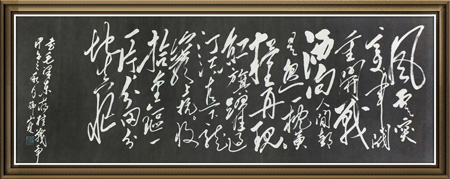 风云突
变军阀
重开战
洒向人间都
是怨一枕黄
粱再现
红旗跃过
汀江直下龙
岩上杭收
拾金瓯一
片分田分
地真忙
书毛泽东蒋桂战争
甲午之秋月